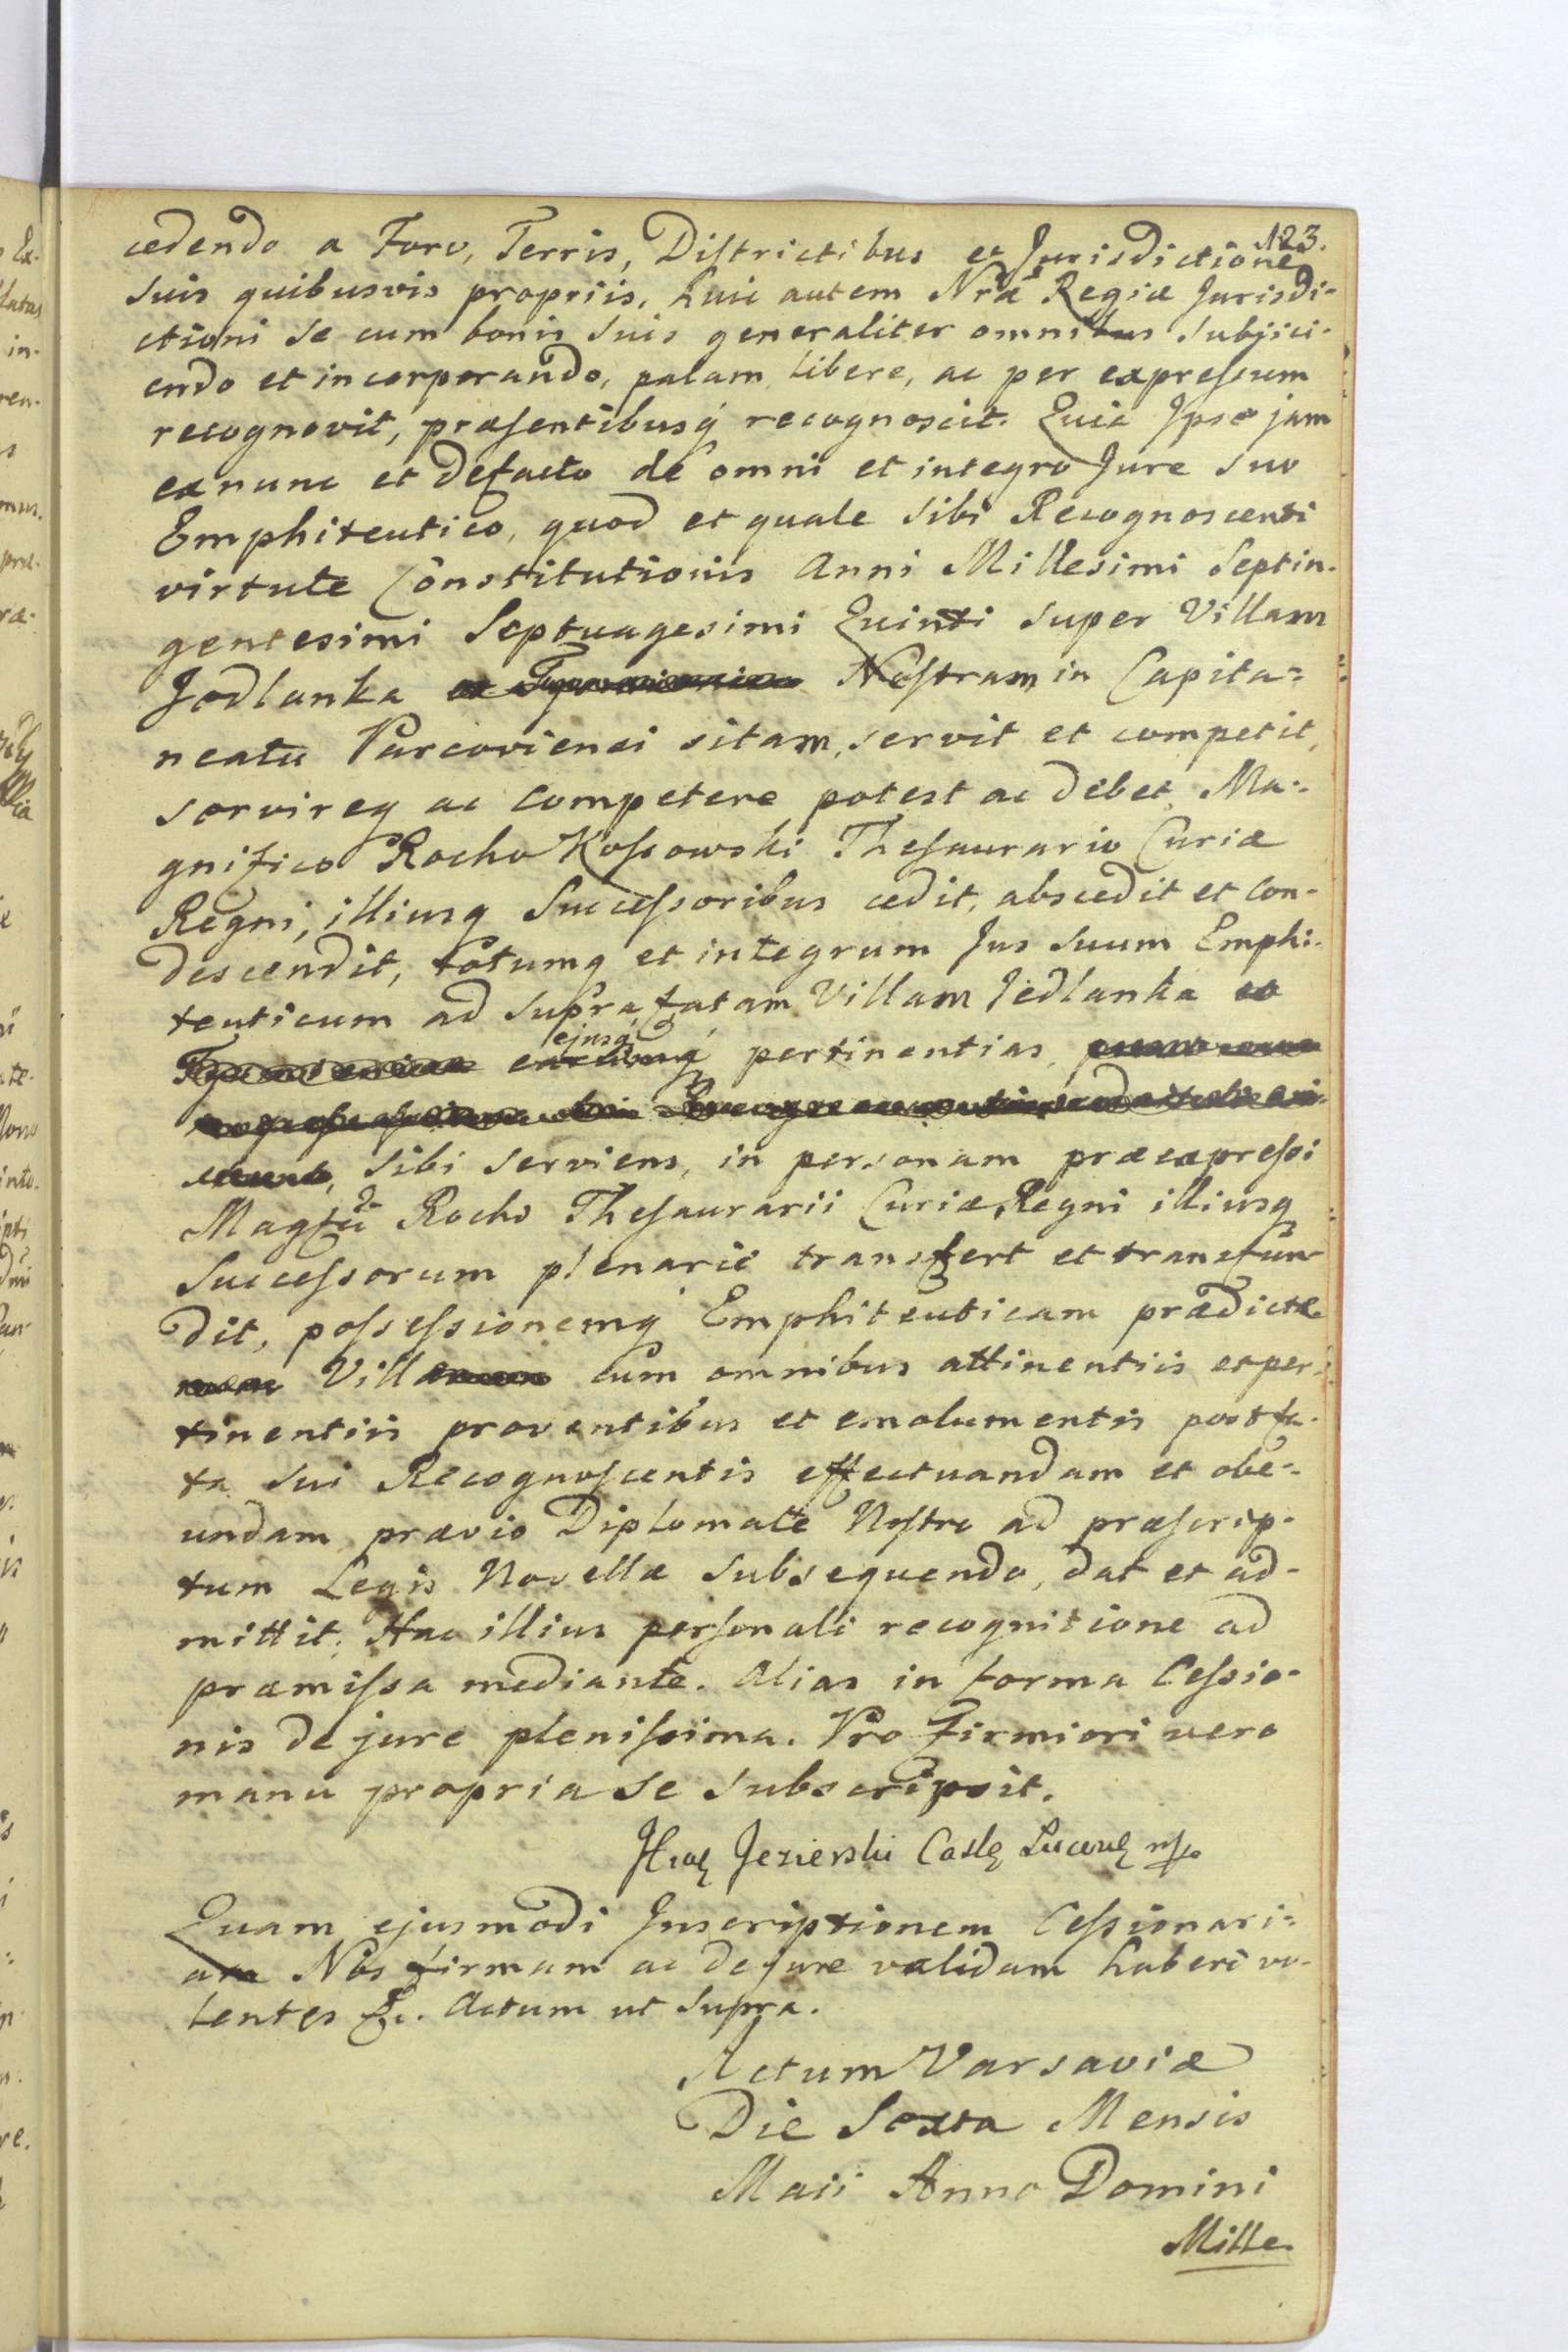 123.
cedendo a Foro, Terris, Districtibus et Jurisdictione
suis quibusvis propriis, huic autem Nrae Regiae Jurisdi-
ctioni se cum bonis suis generaliter omnibus subjici-
endo et incorporando, palam, libere, ac per expressum
recognovit, praesentibusq recognoscit. Quia Ipse jam
ex nunc et defacto de omni et integro Jure suo
Emphiteutico, quod et quale sibi Recognoscenti
virtute Constitutionis Anni Millesimi Septin-
gentesimi Septuagesimi Quinti super Villam
Jodlanka Nostram in Capita=
neatu Parcoviensi sitam, servit et competit,
servireq ac competere potest ac debet, Ma-
gnifico Rocho Kossowski Thesaurario Curiae
Regni, illiusq Successoribus cedit, abscedit et con-
descendit, totumq et integrum Jus suum Emphi-
teuticum ad suprafatam Villam Jedlanka et
ejusq pertinentias,
sibi serviens, in personam praeexpressi
Magfci Rocho Thesaurarii Curiae Regni illiusq
Successorum plenarie transfert et transfun-
dit, possessionemq Emphiteuticam praedictae
Villae cum omnibus attinentiis et per-
tinentiis proventibus et emolumentis post fa-
ta sui Recognoscentis effectuandam et obe-
undam, praevio Diplomate Nostro ad praescrip-
tum Legis Novellae subsequendo, dat et ad-
mittit. Hac illius personali recognitione ad
praemissa mediante. Alias in forma Cessio-
nis de jure plenissima. Pro firmiori vero
manu propria se subscripsit.
Jezierski Castl Lucovl mp
Quam ejusmodi Inscriptionem Cessionari=
am Nos firmam ac de jure validam haberi vo-
lentes &c. Actum ut supra.
Actum Varsaviae
Die Sexta Mensis
Maii Anno Domini
Mille-